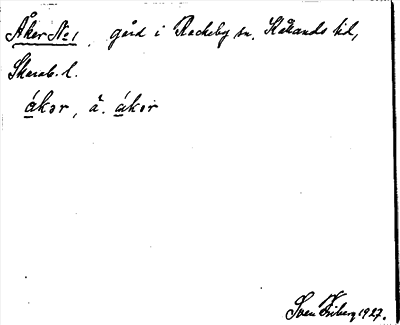 Åker No 1, gård i Rackeby sn, Kålands hd,
Skarab. l.
ákər, å. ákər
Sven Friberg 1927.